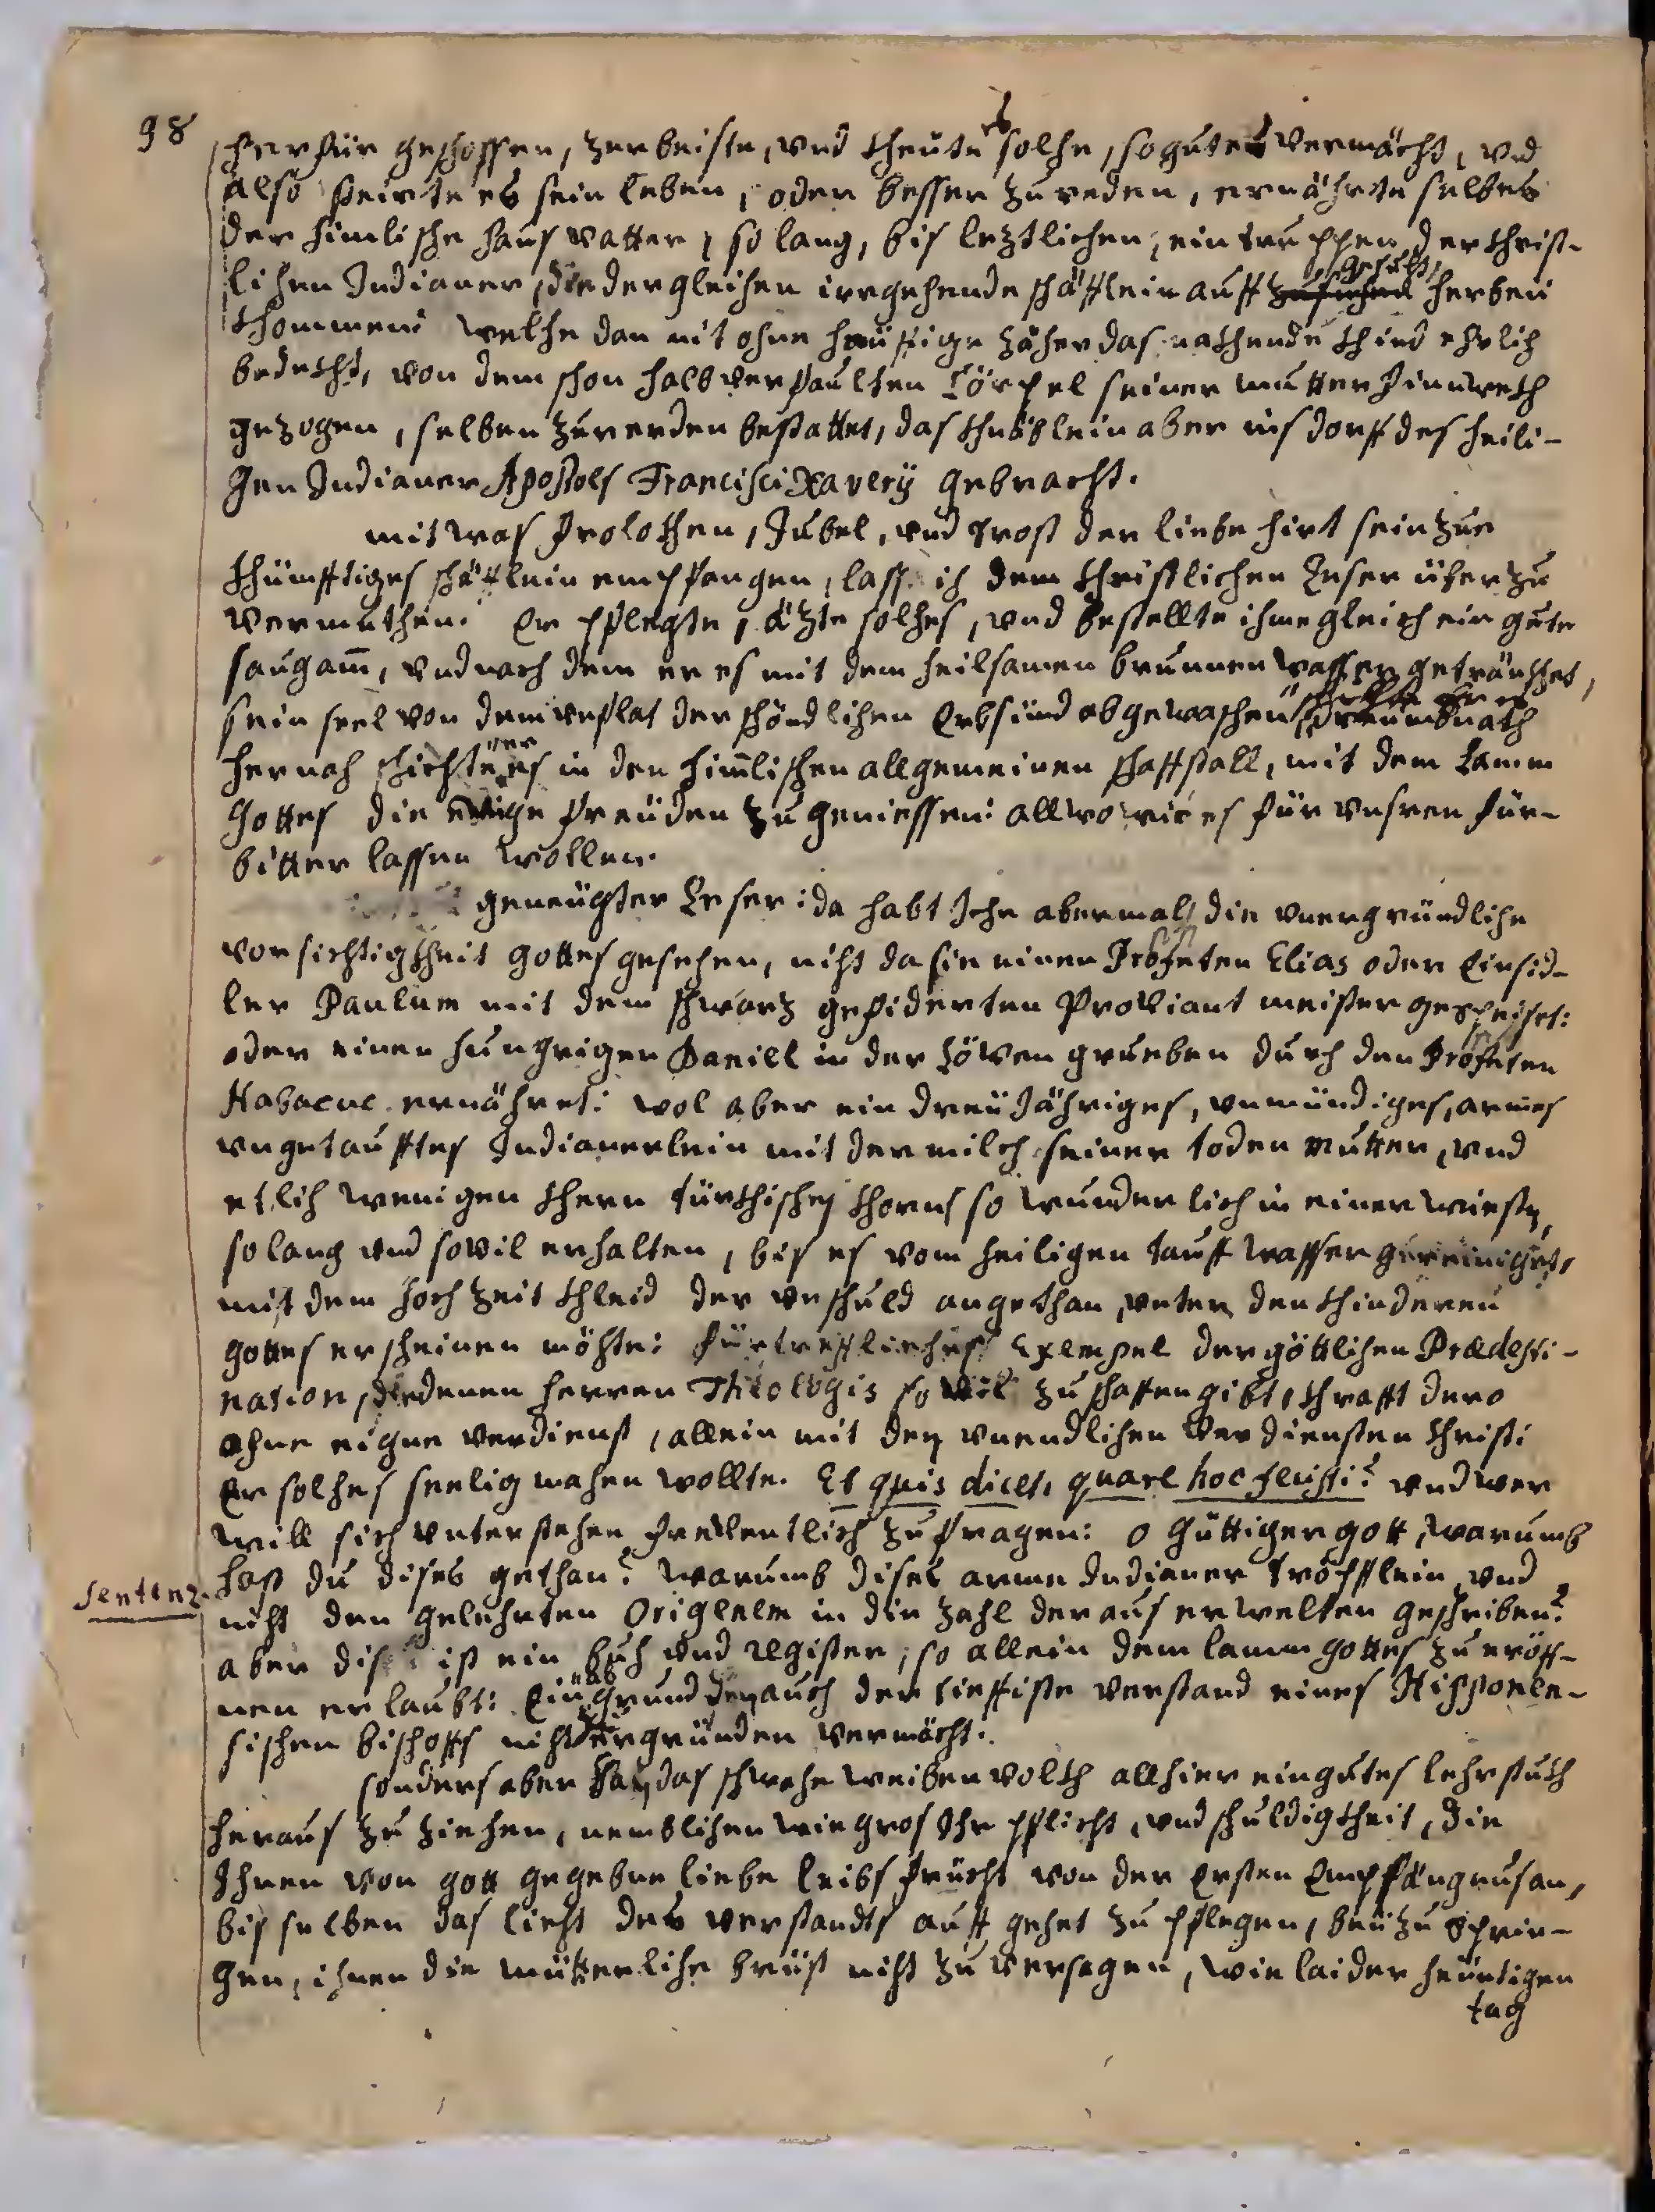 98
herfür geschossen, zerbeiste, und cheüte es solche, so gutes vermöcht, und
also freirte es sein leben, oder besser zureden, ernährte selbes
der himlische hausvatter, so lang, bis letztlichen, ein truppen, der christ-
lichen Indianer, die dergleichen irrgehende schäfflein auffgesucht, herbeÿ
khommen: welche dan nit ohne häuffige zäher das nakhende khind ehrlich
bedekht, von dem schon halb verfaulten Cörpel seiner mutter hinwekh
gezogen, selben zuerden bestattet, das khnäblein aber ins dorff des heili-
gen Indianer Apostels Francisci Xaverÿ gebracht.
mit was frolokhen, Jubel, und trost der liebe hirt sein zue
khünfftiges schäfflein empfangen, lass ich dem christlichen Leser über zu
vermuthen. Er pflegte, äzte solches, und bestellte ihme gleich ein gute
saugam̄, und nach dem er es mit dem heilsamen brunnenwasser getränkhet,
sein seel von dem unflat der schändlichen Erbsünd abgewaschen
hernach schickte er es in den him̄lischen allgemeinen schaffstall, mit dem Lamm
Gottes die ewige freüden zu geniessen: allwo wir es für unsren für-
bitter lassen wollen.
geneügster Leser: da habt Ihr abermals die unergründliche
vorsichtigkheit gottes gesehen, nicht da sie einen Profeten Elias oder Einsid-
ler Paulum mit dem schwarz gefiderten Proviant meister gespeiset:
oder einen hungrigen Daniel in der Löwen grueben durch den Profeten
Habacuc ernähret: wol aber ein dreÿ Jähriges, unmündiges, armes
ungetaufftes Indianerlein mit der milch seiner toden mutter, und
etlich wenigen khern türkhischen khorns so wunderlich in einer wiesten,
so lang und sovil erhalten, bis es vom heiligen tauff wasser gereiniget,
mit dem hochzeit khleid der unschuld angethan, unter den khinderen
gottes erscheinen möchte: fürtreffliches Exempel der göttlichen Prædesti-
nation, die denen herren Theologis so vil zu schaffen gibt, khrafft dero
ohne eigne verdienst, allein mit den unendlichen verdiensten christi
Er solches seelig machen wollte. Et quis dicet, quare hoc fecisti? und wer
will sich unterstehen freventlich zu fragen: o güttiger gott, warumb
hast du dises gethan? warumb dises arme Indianer tröpfflein, und
Sentenz.
nicht den gelehrten Origenem in die zahl der auserwelten geschriben?
aber dis ist ein buch und register, so allein dem lamm gottes zu eröff-
nen erlaubt: Ein abgrund den auch der tieffiste verstand eines Hipponen-
sischen bischoffs nicht ergründen vermöcht.
sonders aber hat das schwache weiber volkh allhier ein gutes lehrstukh
heraus zu ziehen, nemblichen wie gros Ihr pflicht, und schuldigkheit, die
Ihnen von gott gegebne liebe leibs frücht von der Ersten Empfängnus an,
bis selben das liecht des verstandts auff gehet zu pflegen, beÿ zu sprin-
gen, ihnen die mütterliche brüst nicht zu versagen, wie laider heüntigen
tag